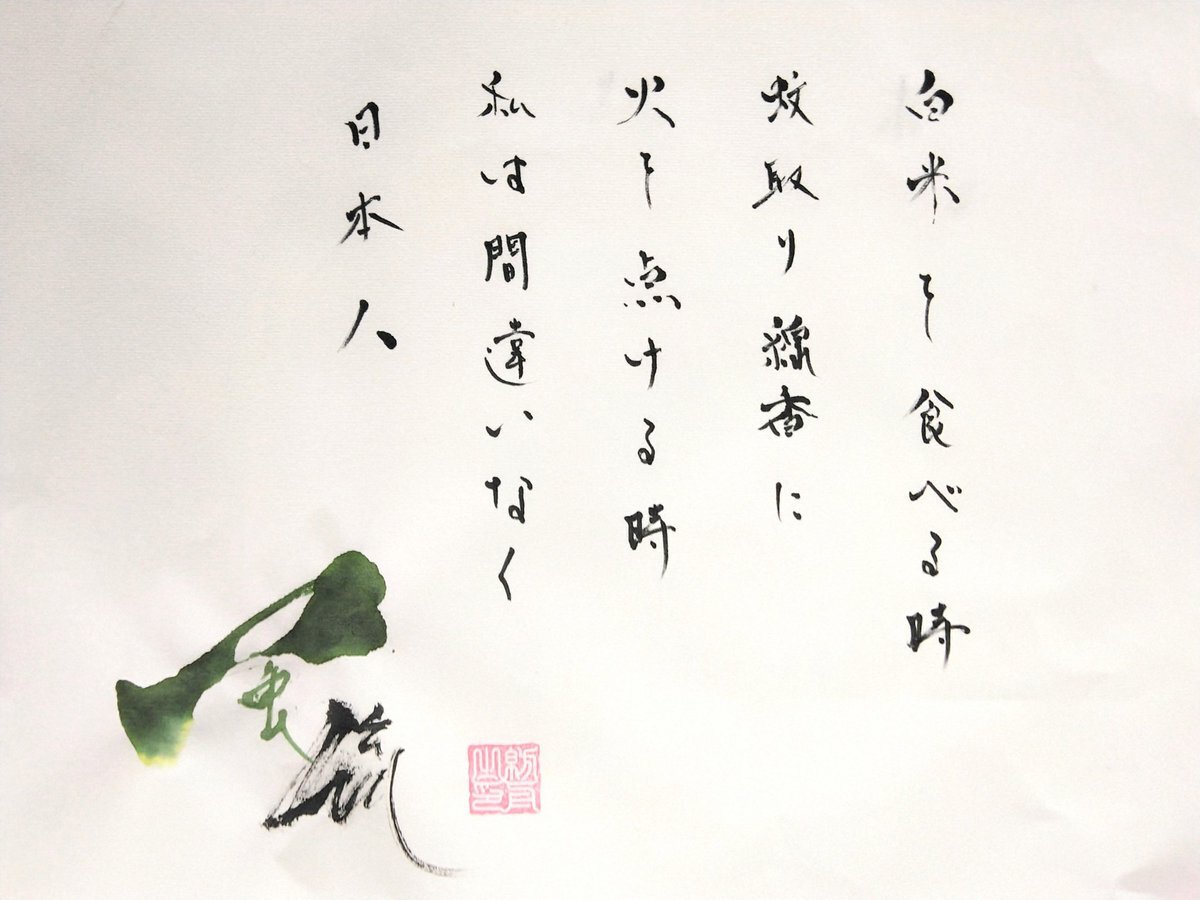 白米を食べる時
蚊取り線香に
火を点ける時
私は間違いなく
日本人
風流